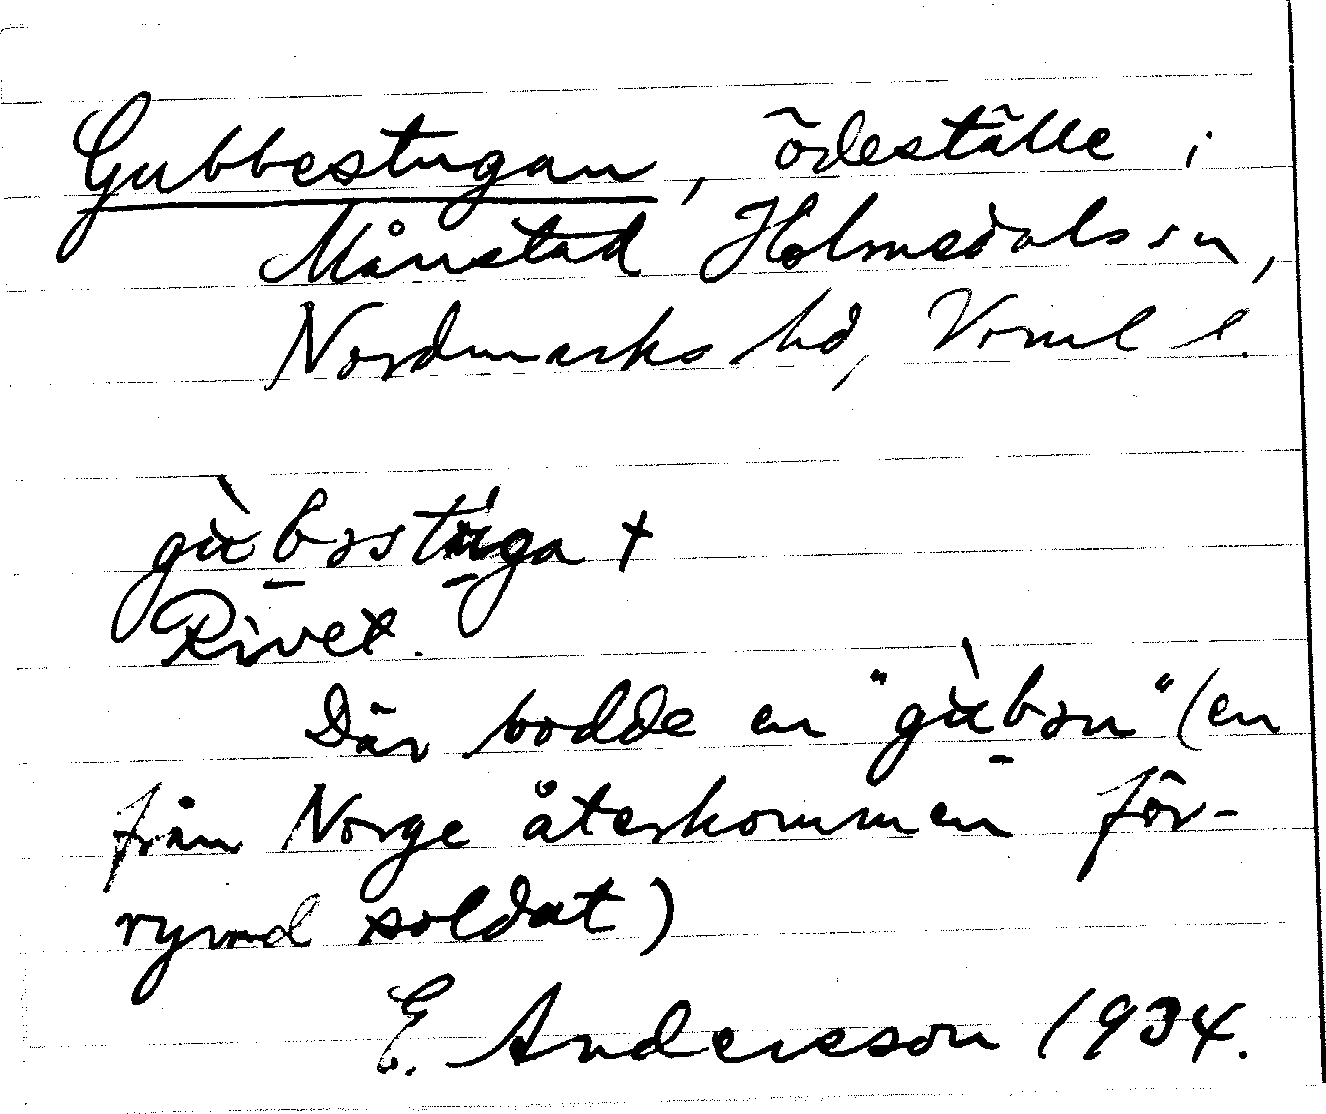 Gubbestugan, ödeställe i
Månstad Holmedals sn,
Nordmarks hd, Vrml l.
gùbəstúga +
Rivet.
Där bodde en "gùbən" (en
från Norge återkommen för-
rymd soldat)
E. Andersson 1934.